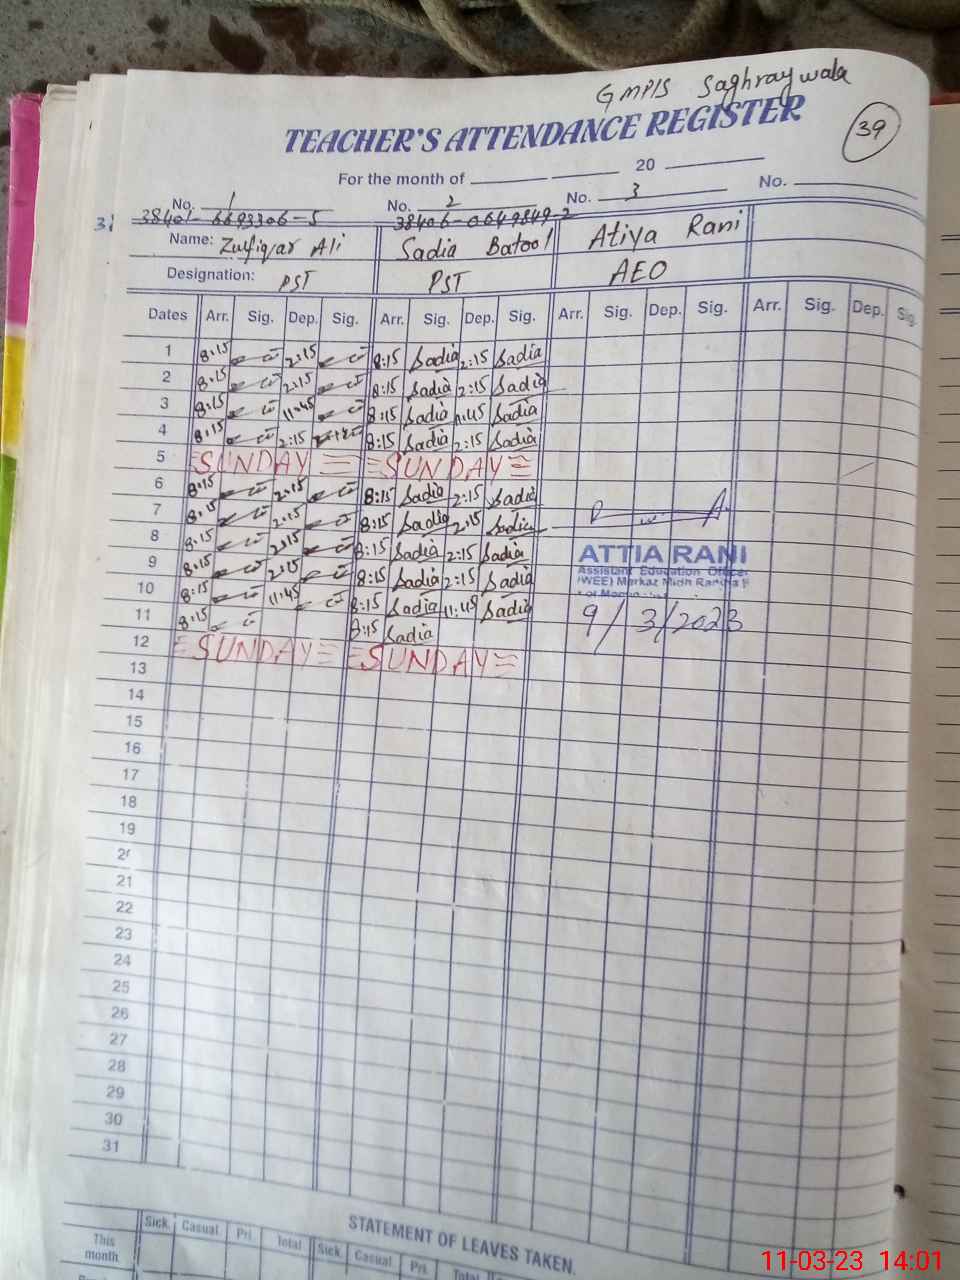 GMPIS Saghraywala
TEACHER'S ATTENDANCE REGISTER
39
For the month of 20
No. 1 No. 2 No. 3 No.
38401-6693306-5 38406-0649849-2
Name: Zulfiqar Ali Sadia Batool Atiya Rani
Designation: PST PST AEO
Dates Arr. Sig. Dep. Sig. Arr. Sig. Dep. Sig. Arr. Sig. Dep. Sig. Arr. Sig. Dep. Sig.
1 8:15 2:15 8:15 Sadia 2:15 Sadia
2 8:15 2:15 8:15 Sadia 2:15 Sadia
3 8:15 11:45 8:15 Sadia 11:45 Sadia
4 8:15 2:15 8:15 Sadia 2:15 Sadia
5 SUNDAY SUNDAY
6 8:15 2:15 8:15 Sadia 2:15 Sadia
7 8:15 2:15 8:15 Sadia 2:15 Sadia
8 8:15 2:15 8:15 Sadia 2:15 Sadia
9 8:15 2:15 8:15 Sadia 2:15 Sadia
10 8:15 11:45 8:15 Sadia 11:49 Sadia
11 8:15 8:15 Sadia
12 SUNDAY SUNDAY
ATTIA RANI
Assistant Education Officer
(WEE) Markaz Midh Ranjha
9/3/2023
13
14
15
16
17
18
19
20
21
22
23
24
25
26
27
28
29
30
31
STATEMENT OF LEAVES TAKEN.
Sick. Casual Pri. Total Sick. Casual Pri. Total
This month
11-03-23 14:01